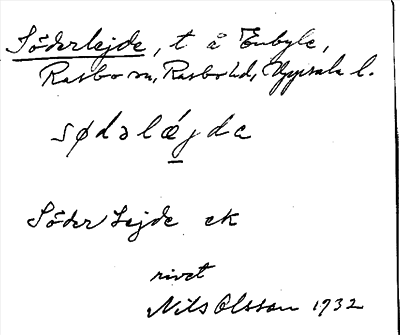 Söderlejde, t å Enbyle,
Rasbo sn, Rasbo hd, Uppsala l.
sødəlǽjda
Söder Lejde ek
rivet
Nils Olsson 1932